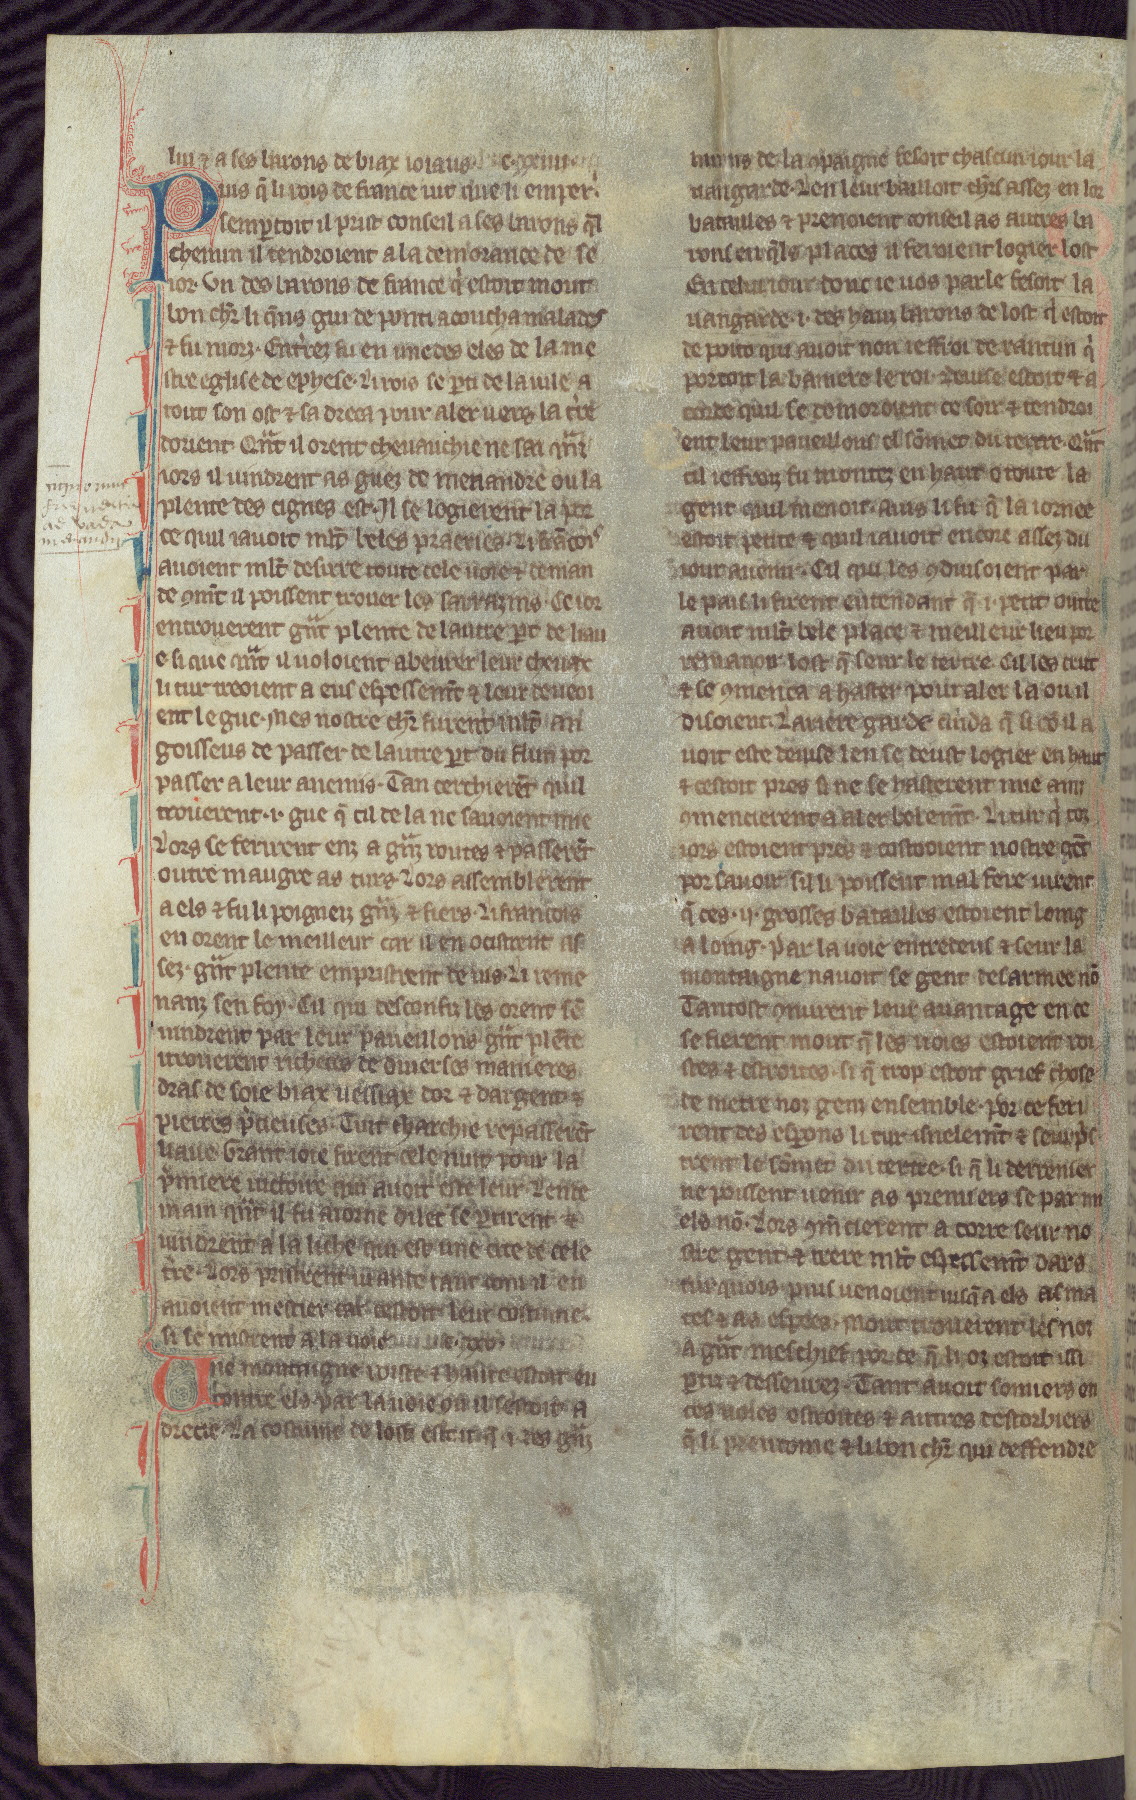 lui ⁊ a ses barons de biax ioiaus. c. xxiiii.
Puis q̃ li rois de france vit que li emper̃.
sempartoit il prist conseil a ses barons q̃l
chemin il tendroient a la demorance de se
ior. Vn des barons de france q̾ estoit mout
bon chr̃. li q̃ns gui de ponti acoucha malades
⁊ fu morz. Enterrez fu en une des eles de la me
stre eglise de ephese. Li rois se pti de la uile a
tout son ost ⁊ sa dreca pour aler uers la t̾re
dorient. Qñt il orent cheuauchie ne sai qñz
iors il uindrent as guez de menandre ou la
plente des cignes est. Il se logierent la por
ce quil iauoit mlt̃ beles praeries. Li francois
auoient mlt̃ desirre toute cele uoie ⁊ deman
de cõmt il poissent trouer les sarrazins. Ce ior
en trouerent gñt plente de lautre pt de liau
e si que qñt il uoloient abeurer leur cheuax
li tur treoient a eus espessemt̃ ⁊ leur deueoi
ent le gue. Mes nostre chr̃. furent mlt̃ an
goisseus de passer de lautre pt du flun por
passer a leur anemis. Tan cerchierẽt quil
trouerent .i. gue q̃ cil de la ne sauoient mie
Lors se ferirent enz a gñz routes ⁊ passerẽt
outre maugre as turs. Lors assemblerent
a els ⁊ fu li poigneiz gñz ⁊ fiers. Li francois
en orent le meilleur car il en ocistrent as
sez. gñt plente empristrent de uis. Li reme
nanz sen foy. Cil qui desconfiz les orent sẽ
uindrent par leur paueillons. gñt plẽte
itrouerent richeces de diuerses manieres.
dras de soie biax uessiax dor ⁊ dargent ⁊
pierres p̃cieuses. Tuit charchie repasserẽt
liaue. Grant ioie firent cele nuit pour la
p̃miere uictoire qui auoit este leur. Lende
main qñt il fu aiorne dilec se ptirent ⁊
uindrent a la liche qui est une cite de cele
t̾re. Lors pristrent uiande tant com il en
auoient mestier car cestoit leur coustume.
si se mistrent a la uoie
Vne montaigne roiste ⁊ haute estoit en
contre els par la uoie ou il sestoit a
drecie. La costume de lost estoit q̃ .i. des gñz
barons de la cõpaigne fesoit chascun iour la
uangarde. Len leur bailloit chr̃s assez en lor
batailles ⁊ prenoient conseil as autres ba
rons en q̃ls places il feroient logier lost
En celui iour dont ie uos parle fesoit la
uangarde .i. des hauz barons de lost q̾ estoit
de poito qui auoit non ieffroi de rancun q̾
portoit la baniere le roi. Deuise estoit ⁊ a
corde quil se demorroient ce soir ⁊ tendroi
ent leur paueillons el sõmet du tertre. Qñt
cil ieffroiz fu montez en haut o toute la
gent quil menoit. Auis li fu q̃ la iornee
estoit petite ⁊ quil iauoit encore assez du
iour auenir. Cil qui les cõduisoient par
le pais li firent entendant q̃ .i. petit outre
auoit mlt̃ bele place ⁊ meilleur lieu por
remanoir lost q̃ seur le tertre. Cil les crut
⁊ se cõmenca a haster pour aler la ou il
disoient. Lariere garde cuida q̃ si cõ il a
uoit este deuise len se deust logier en haut
⁊ cestoit pres si ne se hasterent mie ainz
cõmencierent a aler belemt̃. Li tur q̾ toz
iors estoient pres ⁊ costooient nostre gẽt
por sauoir sil li poissent mal fere uirent
q̃ ces .ii. grosses batailles estoient loing
a loing. par la uoie entredeus ⁊ seur la
montaigne nauoit se gent desarmee nõ
Tantost cõnurent leur auantage en ce
se fierent mout q̃ les uoies estoient roi
stes ⁊ estroites. si q̃ trop estoit grief chose
de metre noz genz ensemble. por ce feri
rent des esperons li tur isnelemt̃ ⁊ seurpris
trent le sõmet du tertre. si q̃ li derrenier
ne poissent uenir as premiers se par mi
els nõ. Lors cõmencierent a corre seur no
stre gent ⁊ trere mlt̃ espessemt̃ dars
turquois. puis uenoient iusq̃ a els as ma
ces ⁊ as espees. Mout trouerent les noz
a gñt meschief por ce q̃ li oz estoit issi
ptiz ⁊ desseurez. Tant auoit somiers en
ces uoies estroites ⁊ autres destorbiers
q̃ li preudome ⁊ li bon chr̃. qui deffendre
ad vada